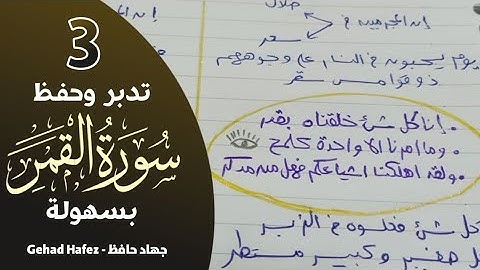 3
تدبر وحفظ
سورة القمر
بسهولة
Gehad Hafez - جهاد حافظ
ضلال
إن المجرمين في
سعر
يوم يسحبون في النار على وجوههم
ذوقوا مس سقر
إنا كل شئ خلقناه بقدر
وما امرنا الا واحدة كلمح
ولقد اهلكنا اشياعكم فهل من مدكر
كل شئ فعلوه في الزبر
صغير وكبير مستطر